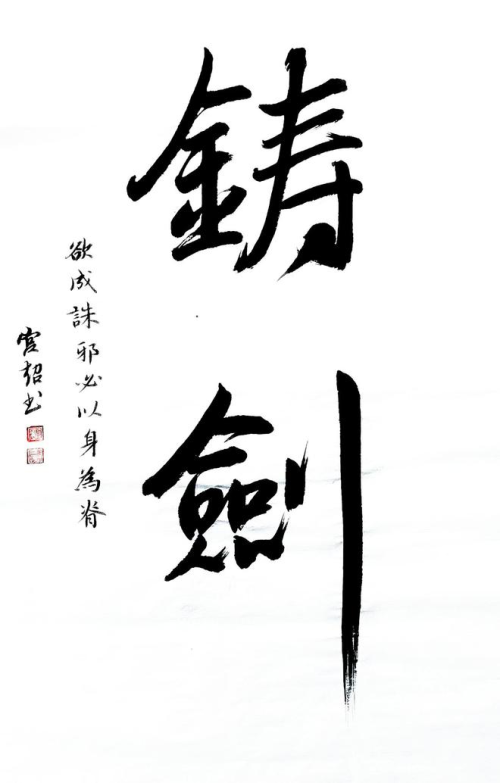 鋳劍
欲成誅邪必以身為脊
宫超书